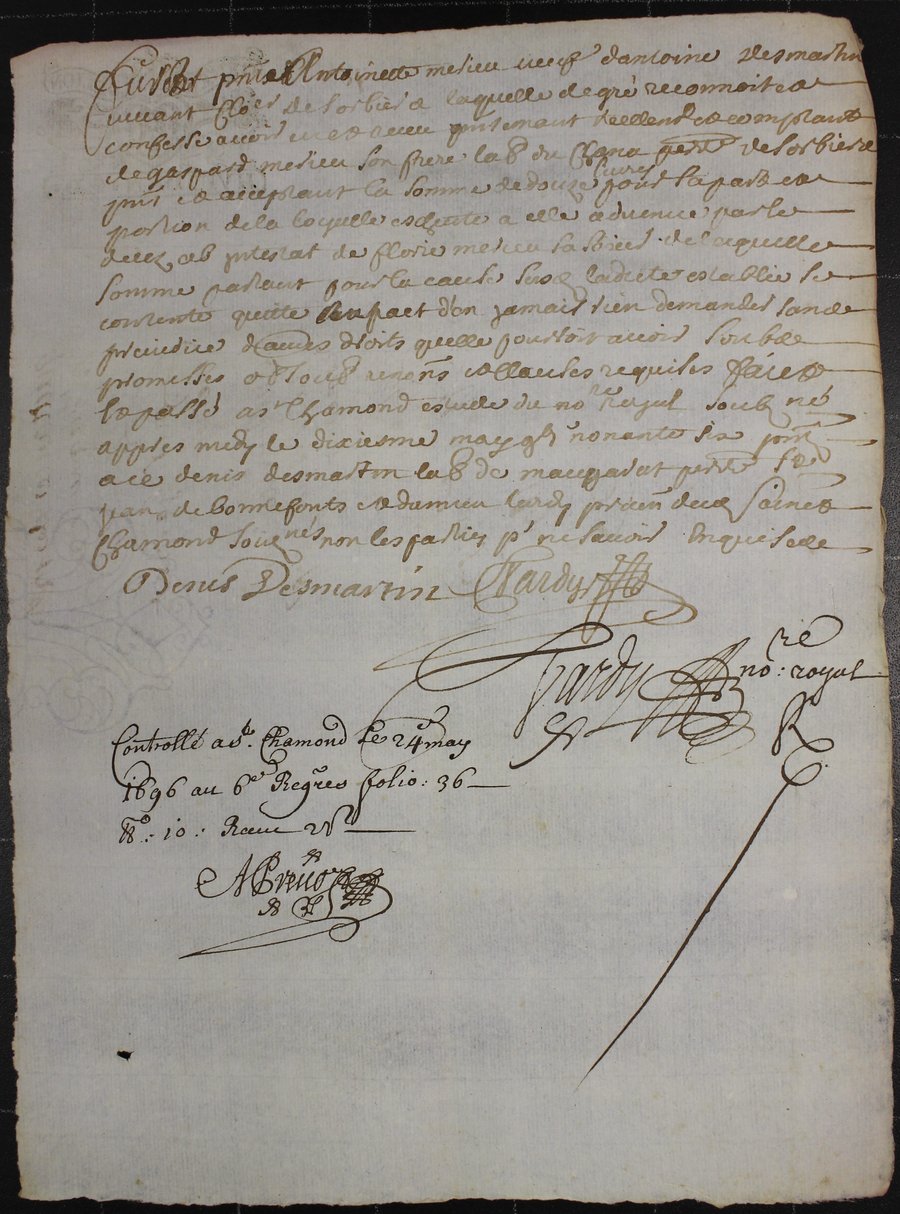 Fust pnte Antoinette merieu veufe dantoine Desmartin
vivant de Sorbiere laquelle de gré reconnoit et
confesse avoir eu et receu puremant reellemt et comptant
de gaspard merieu son frere lab du de Sorbiere
pnt et acceptant la somme de douze livres pour sa part et
portion de la loquelle escheute a elle advenue par le
decez ab intestat de florie merieu sa de laquelle
somme partant pour la cause susd ladicte establie se
contente quitte en pact den jamais rien demander sans
preiudice dautres droits quelle pourroit avoir soubz
promesses oblou renons et clauses requises faict
et passé a st Chamond estude du nore Royal soubzné
appres midy le dixiesme may nonante six pnt
a ce denis desmartin lab de perre
jean de bonnefonts et damien tardy praticn dud sainct
Chamond soignés non les parties pr ne scavoir enquises
Denis Desmartin Tardy
Tardy nore: royal
R
Controllé a st. Chamond le 24e may
1696 au 6e Regre folio: 36
No: 10: Receu